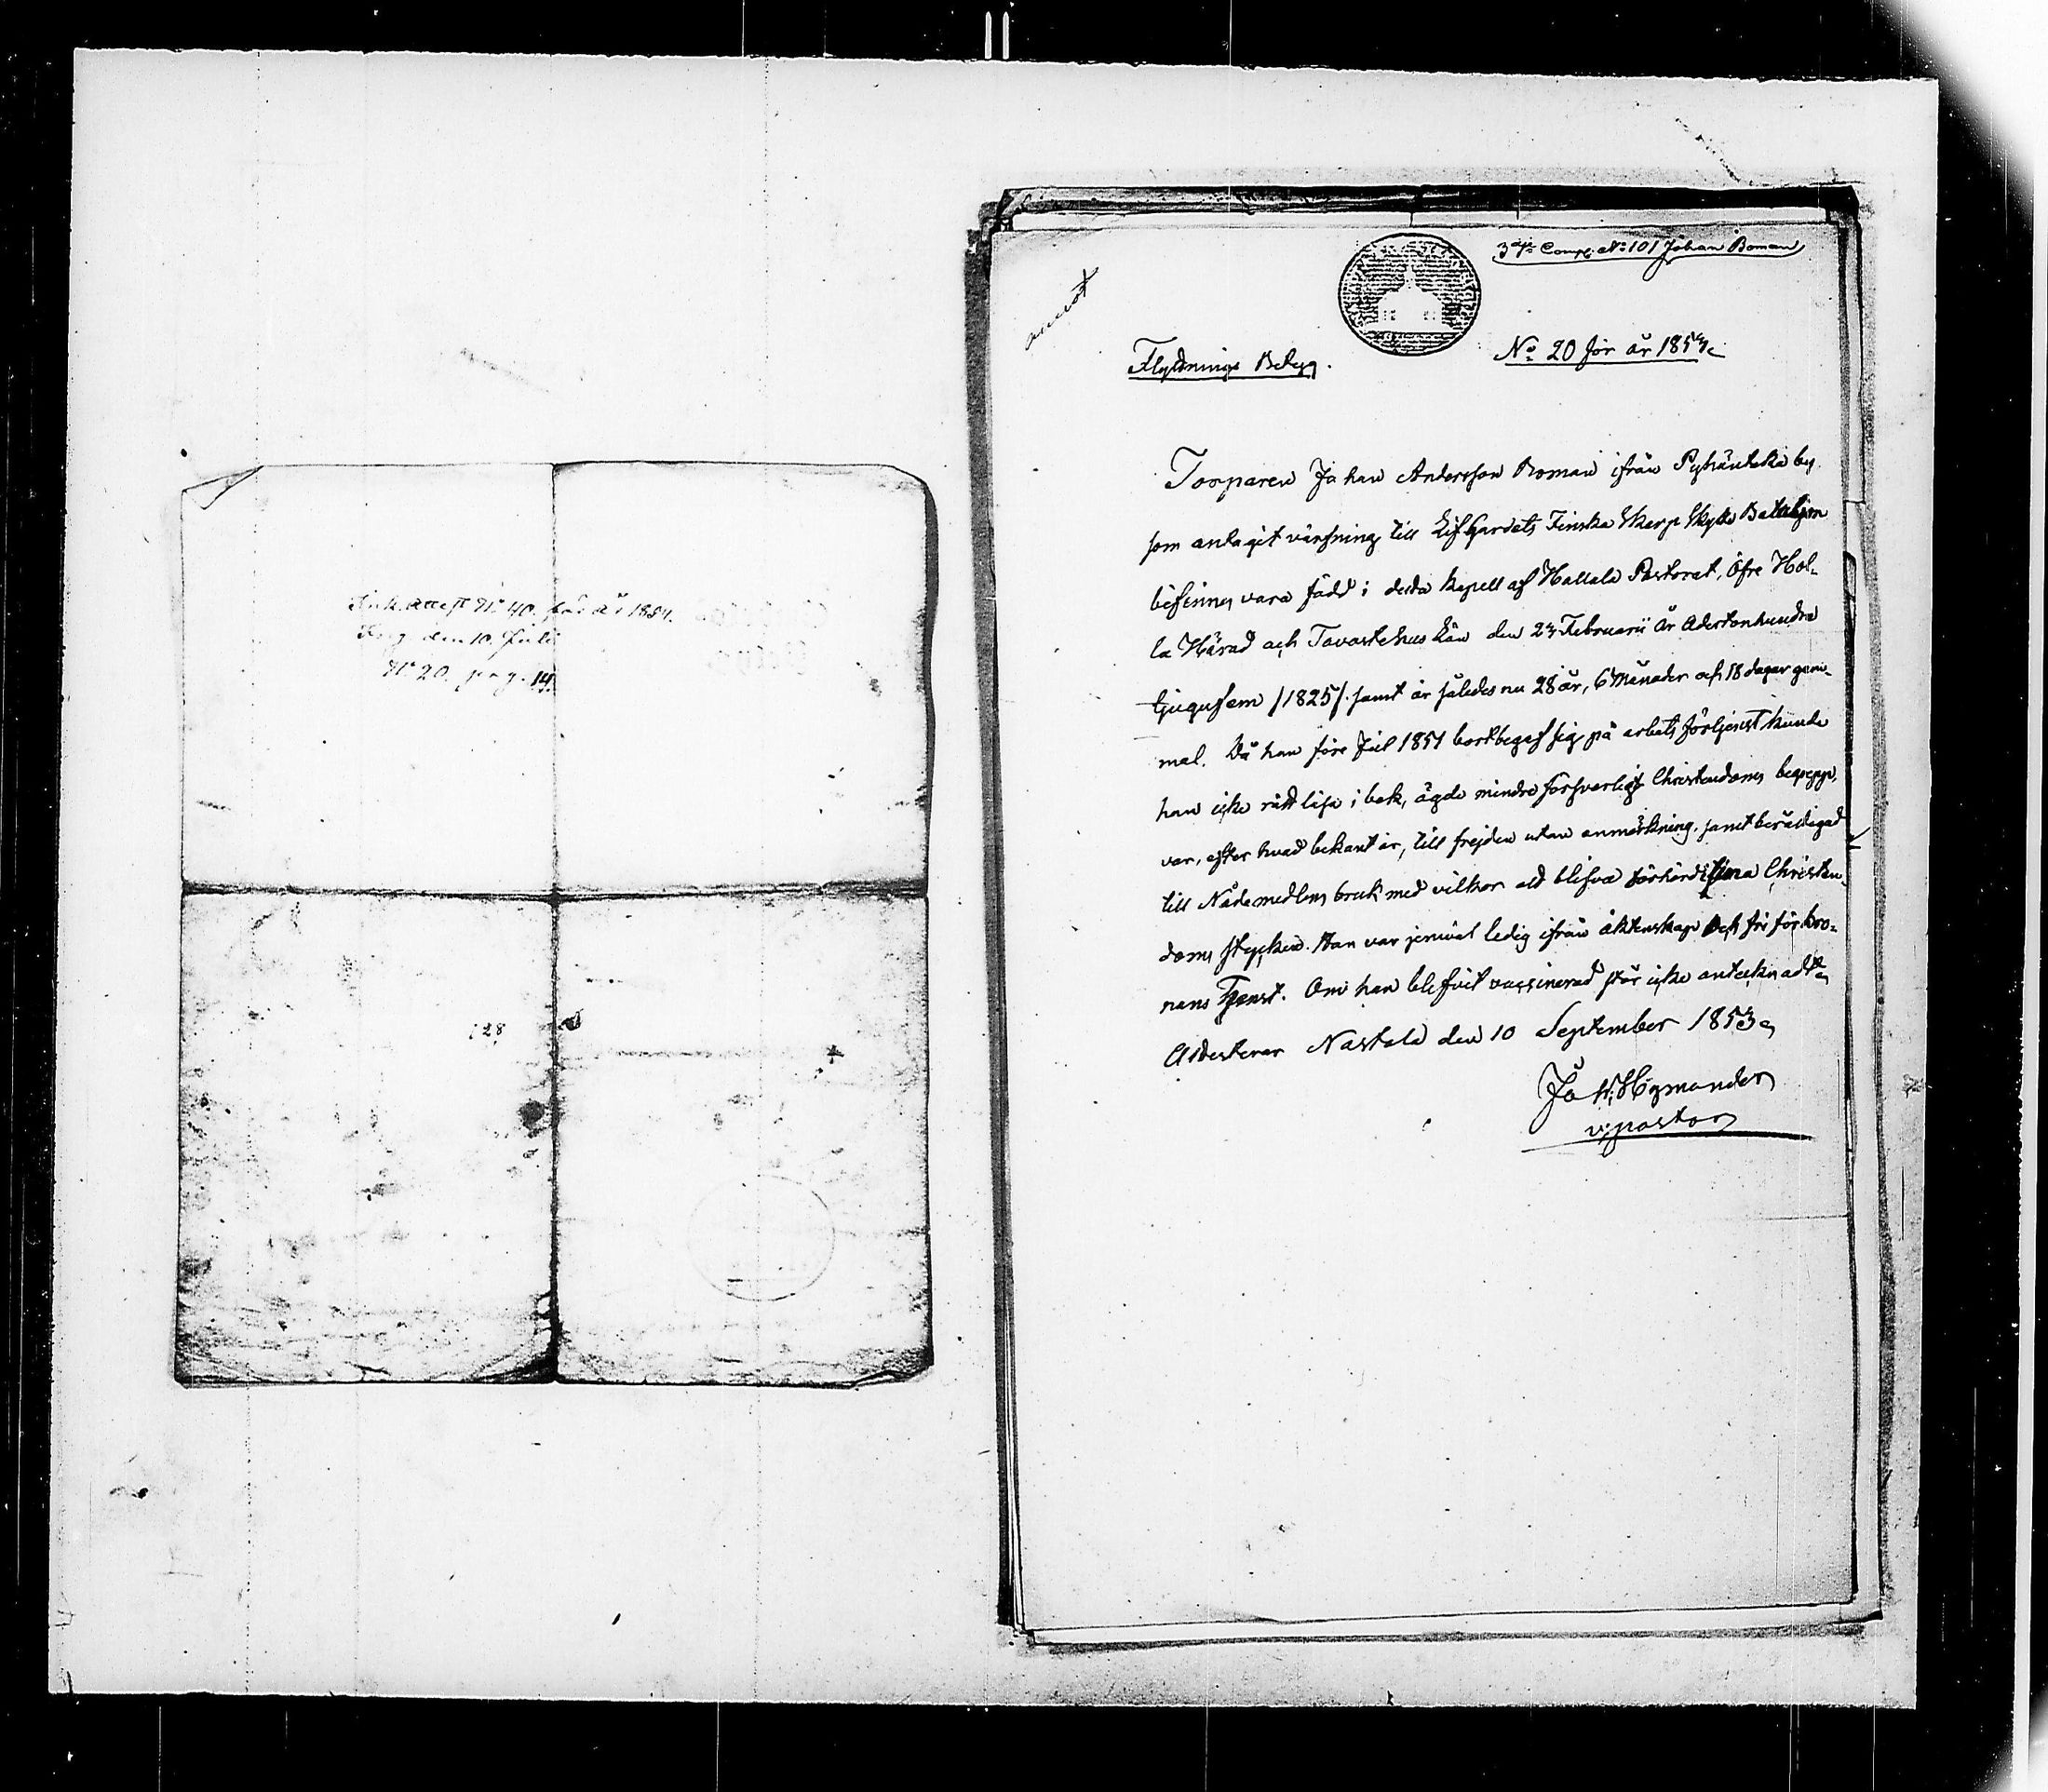 Ink. attest N:o 40. för år 1854.
Ing. den 10. Juli
N:o 20. pag. 14.
128
3dje Comp. No 101 Johan Boman
annot
Flyttnings Betyg.
No 20 för år 1853
Torparen Johan Andersson Boman ifrån Pyhäntaka by
som antagit värfning till Lif Gardets Finska Skarp Skytte Bataljon
befinnes vara född i detta kapell af Hollola Pastorat, Öfre Hol-
la Härad och Tavastehus Län den 23 Februarii år Adertonhundra
tjugufem /1825/. samt är således nu 28 år, 6 månader och 18 dagar gam-
mal. Då han före Jul 1851 bortbegaf sig på arbets förtjenst kunde
han icke rätt läsa i bok, ägde mindre försvarligt Christendoms begrepp,
var, efter hvad bekant är, till frejden utan anmärkning, samt berättigad
till Nådemedlens bruk med vilkor att blifva förhörd i sina Christen-
doms stycken. Han var jemväl ledig ifrån äktenskap och fri för kro-
nans Tjenst. Om han blifvit vaccinerad står icke antecknadt
Attesterar Nastola den 10 September 1853
Joh. Högmander
v: pastor